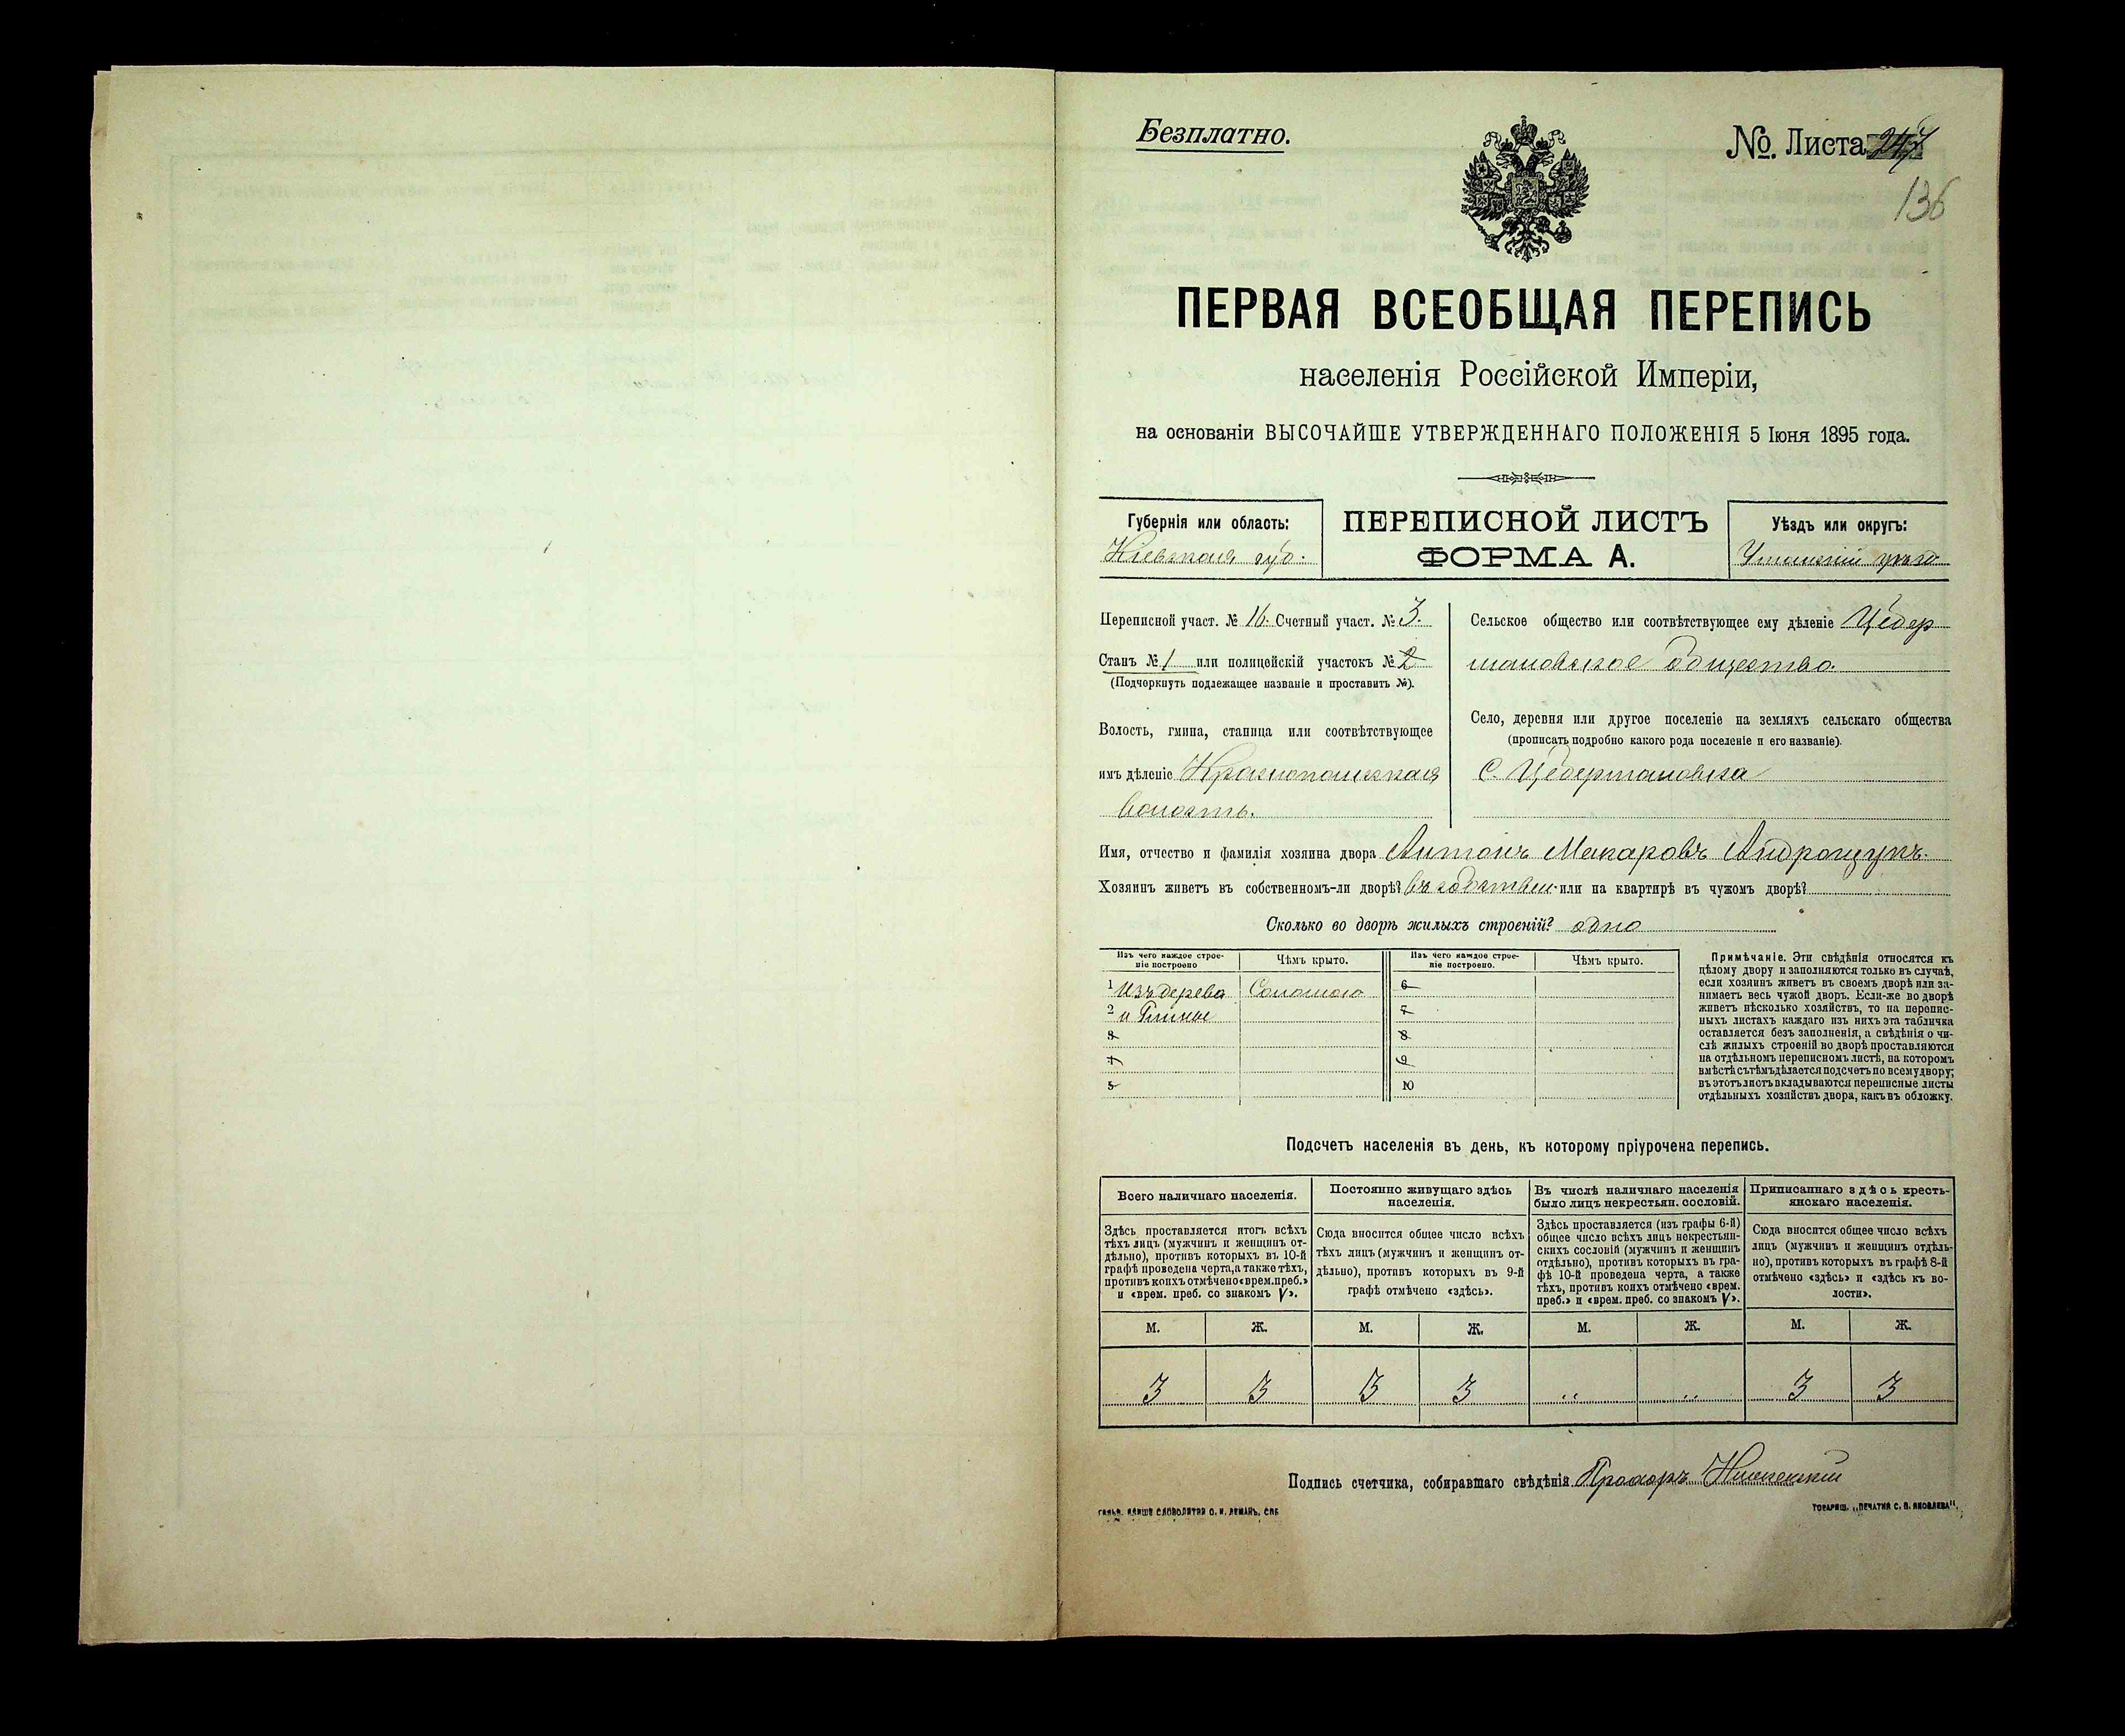 Безплатно.
№. Листа 247
136
ПЕРВАЯ ВСЕОБЩАЯ ПЕРЕПИСЬ
населенія Россійской Имперіи,
на основаніи ВЫСОЧАЙШЕ УТВЕРЖДЕННАГО ПОЛОЖЕНІЯ 5 Іюня 1895 года.
Губернія или область:
Кіевская губ.
ПЕРЕПИСНОЙ ЛИСТЪ
ФОРМА А.
Уѣздъ или округъ:
Уманскій уѣздъ
Переписной участ. № 16. Счетный участ. № 3.
Станъ № 1 или полицейскій участокъ № 2
(Подчеркнуть подлежащее названіе и проставить №).
Волость, гмина, станица или соотвѣтствующее
имъ дѣленіе Краснопольская
волость.
Сельское общество или соотвѣтствующее ему дѣленіе Цебер
мановское общество.
Село, деревня или другое поселеніе на земляхъ сельскаго общества
(прописать подробно какого рода поселеніе и его названіе).
С. Цебермановка
Имя, отчество и фамилія хозяина двора Антонъ Макаровъ Андрощукъ.
Хозяинъ живетъ въ собственномъ-ли дворѣ? въ собствен. или на квартирѣ въ чужомъ дворѣ?
Сколько во дворѣ жилыхъ строеній? одно
Изъ чего каждое строе-
ніе построено
Чѣмъ крыто.
Изъ чего каждое строе-
ніе построено.
Чѣмъ крыто.
1 Изъ дерева Соломою 6
2 и Глины 7
3 8
4 9
5 10
Примѣчаніе. Эти свѣдѣнія относятся къ
цѣлому двору и заполняются только въ случаѣ,
если хозяинъ живетъ въ своемъ дворѣ или за-
нимаетъ весь чужой дворъ. Если-же во дворѣ
живетъ нѣсколько хозяйствъ, то на перепис-
ныхъ листахъ каждаго изъ нихъ эта табличка
оставляется безъ заполненія, а свѣдѣнія о чи-
слѣ жилыхъ строеній во дворѣ проставляются
на отдѣльномъ переписномъ листѣ, на которомъ
вмѣстѣ съ тѣмъ дѣлается подсчетъ по всему двору;
въ этотъ листъ вкладываются переписные листы
отдѣльныхъ хозяйствъ двора, какъ въ обложку.
Подсчетъ населенія въ день, къ которому пріурочена перепись.
Всего наличнаго населенія.
Здѣсь проставляется итогъ всѣхъ
тѣхъ лицъ (мужчинъ и женщинъ от-
дѣльно), противъ которыхъ въ 10-й
графѣ проведена черта, а также тѣхъ,
противъ коихъ отмѣчено «врем. преб.»
и «врем. преб. со знакомъ V».
Постоянно живущаго здѣсь
населенія.
Сюда вносится общее число всѣхъ
тѣхъ лицъ (мужчинъ и женщинъ от-
дѣльно), противъ которыхъ въ 9-й
графѣ отмѣчено «здѣсь».
Въ числѣ наличнаго населенія
было лицъ некрестьян. сословій.
Здѣсь проставляется (изъ графы 6-й)
общее число всѣхъ лицъ некрестьян-
скихъ сословій (мужчинъ и женщинъ
отдѣльно), противъ которыхъ въ гра-
фѣ 10-й проведена черта, а также
тѣхъ, противъ коихъ отмѣчено «врем.
преб.» и «врем. преб. со знакомъ V».
Приписаннаго здѣсь кресть-
янскаго населенія.
Сюда вносится общее число всѣхъ
лицъ (мужчинъ и женщинъ отдѣль-
но), противъ которыхъ въ графѣ 8-й
отмѣчено «здѣсь» и «здѣсь къ во-
лости».
М. Ж. М. Ж. М. Ж. М. Ж.
3 3 3 3 „ „ 3 3
Подпись счетчика, собиравшаго свѣдѣнія
СЛОВОЛИТНИ О. И. ЛЕМАНЪ, СПБ
ТОВАРИЩ. „ПЕЧАТНЯ С. П. ЯКОВЛЕВА".